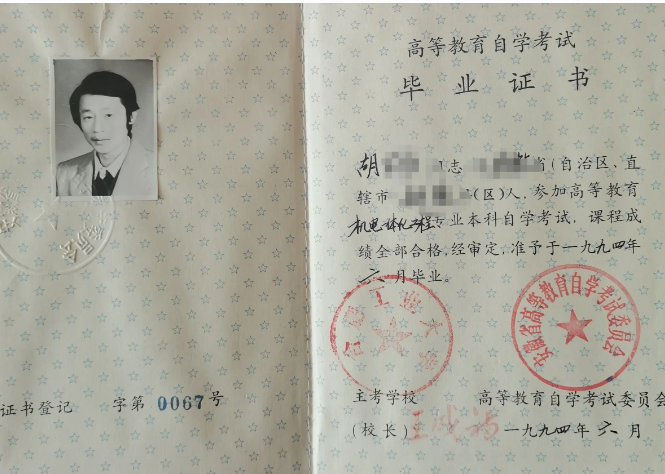 证书登记 字第 0067号
高等教育自学考试
毕业证书
胡 志 省(自治区、直
辖市 (区)人,参加高等教育
机电一体化工程专业本科自学考试,课程成
绩全部合格,经审定,准予于一九九四年
六月毕业。
合肥工业大学
安徽省高等教育自学考试委员会
主考学校 高等教育自学考试委员会
(校长) 一九九四年六月